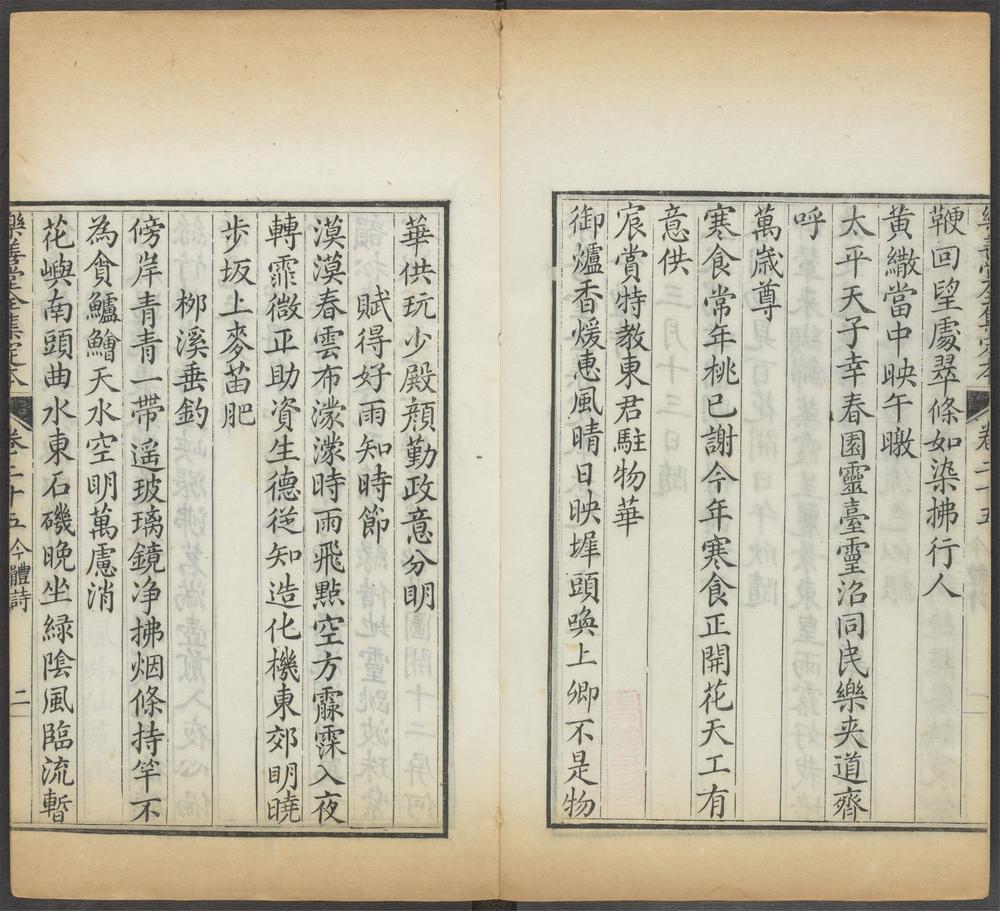 鞭回望處翠條如染拂行人
黃繖當中映午暾
太平天子幸春園靈臺靈沼同民樂夾道齊
呼
萬歲尊
寒食常年桃已謝今年寒食正開花天工有
意供
宸賞特教東君駐物華
御爐香煖惠風晴日映墀頭喚上卿不是物
華供玩少殿顏勤政意分明
賦得好雨知時節
漠漠春雲布濛濛時雨飛㸃空方霢霂入夜
轉霏微正助資生德從知造化機東郊明曉
步坂上麥苗肥
栁溪垂釣
傍岸青青一帶遥玻璃鏡净拂烟條持竿不
為貪鱸鱠天水空明萬慮消
花嶼南頭曲水東石磯晚坐緑陰風臨流暫
樂善堂全集定本
卷二十五
今體詩
二